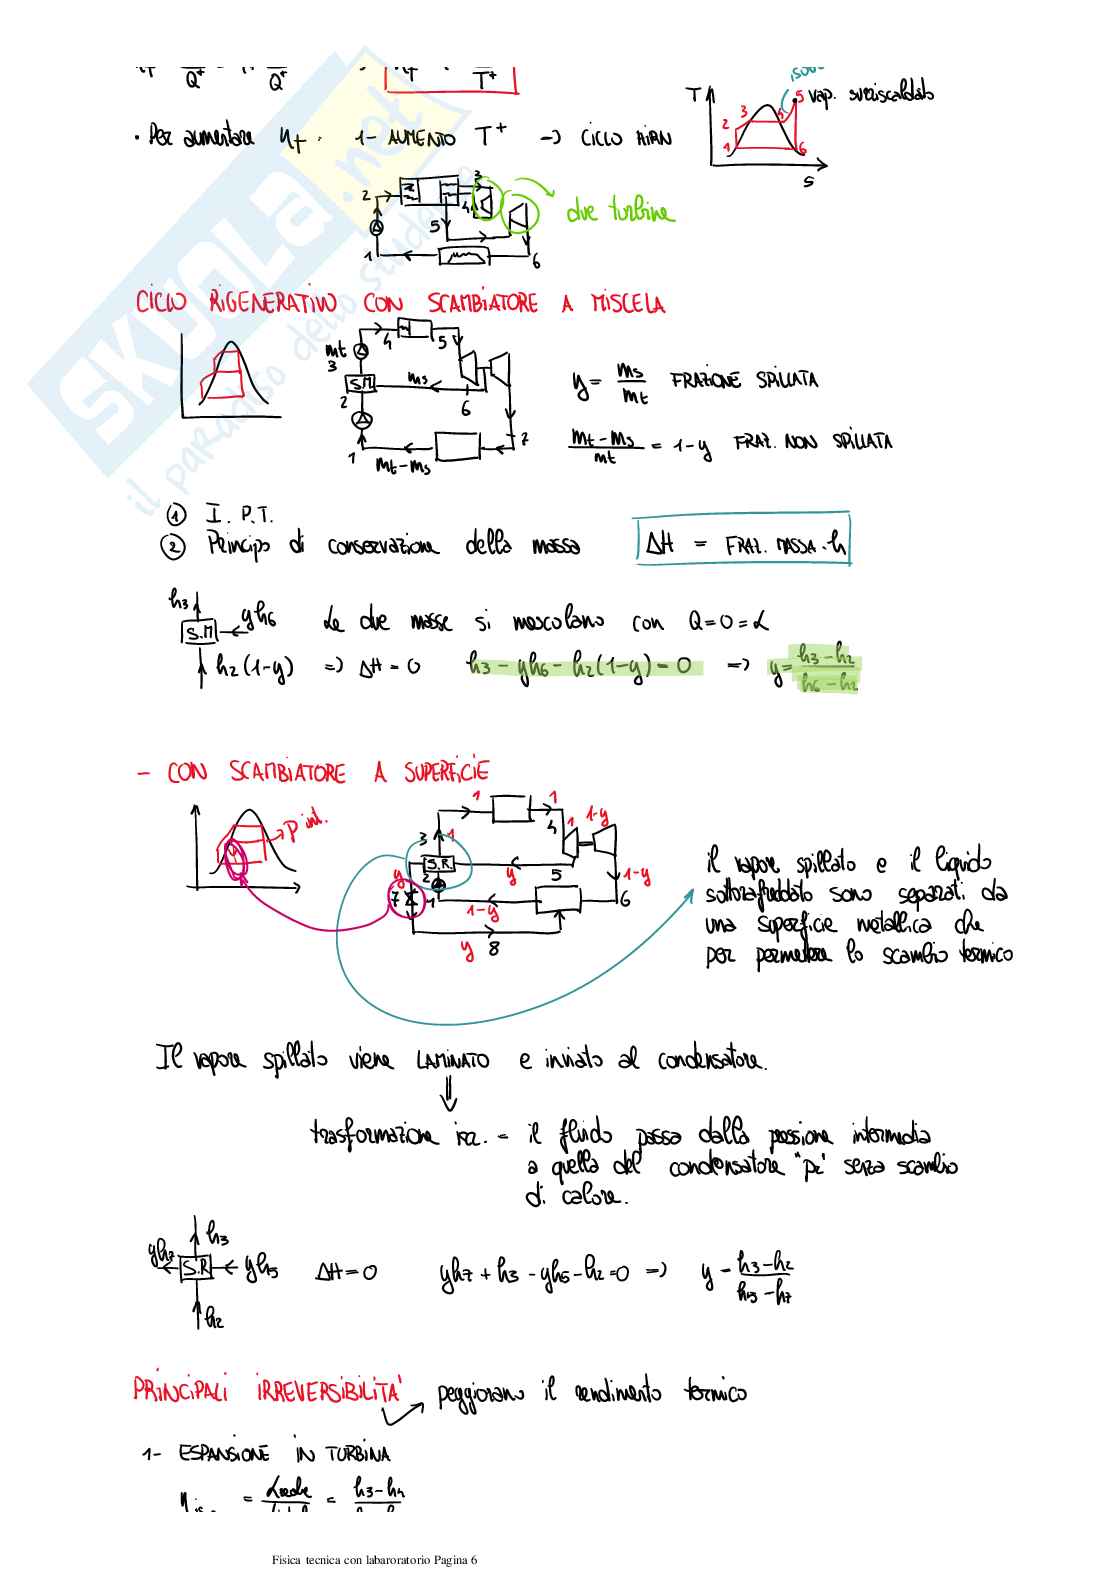 Q+ Q+ T+
T 5 vap. surriscaldato
3
2
1 6
s
• Per aumentare ηt : 1- AUMENTO T+ → CICLO HIRN
3
2
4
5
1 6
due turbine
CICLO RIGENERATIVO CON SCAMBIATORE A MISCELA
4 5
mt
3
S.M ms
2 6
1 7
mt-ms
y = ms/mt FRAZIONE SPILLATA
mt-ms/mt = 1-y FRAZ. NON SPILLATA
① I. P.T.
② Principo di conservazione della massa
ΔH = FRAZ. MASSA · h
h3
S.M yh6 Le due masse si mescolano con Q=0=L
h2(1-y) => ΔH=0 h3 - yh6 - h2(1-y) = 0 => y = h3-h2/h6-h2
- CON SCAMBIATORE A SUPERFICIE
1 1
p int. 4 1 1-y
3 1
S.R
y y 5 1-y
7 2 1 1-y 6
y 8
il vapore spillato e il liquido
sottoraffreddato sono separati da
una superficie metallica che
per permettere lo scambio termico
Il vapore spillato viene LAMINATO e inviato al condensatore.
trasformazione irr. = il fluido passa dalla pressione intermedia
a quella del condensatore "pc" senza scambio
di calore.
h3
yh7 S.R yh5 ΔH=0 yh7 + h3 - yh5 - h2=0 => y = h3-h2/h5-h7
h2
PRINCIPALI IRREVERSIBILITA' peggiorano il rendimento termico
1- ESPANSIONE IN TURBINA
ηis = Lreale = h3-h4
Fisica tecnica con labaroratorio Pagina 6
SKUOLA.net
il paradiso dello studente